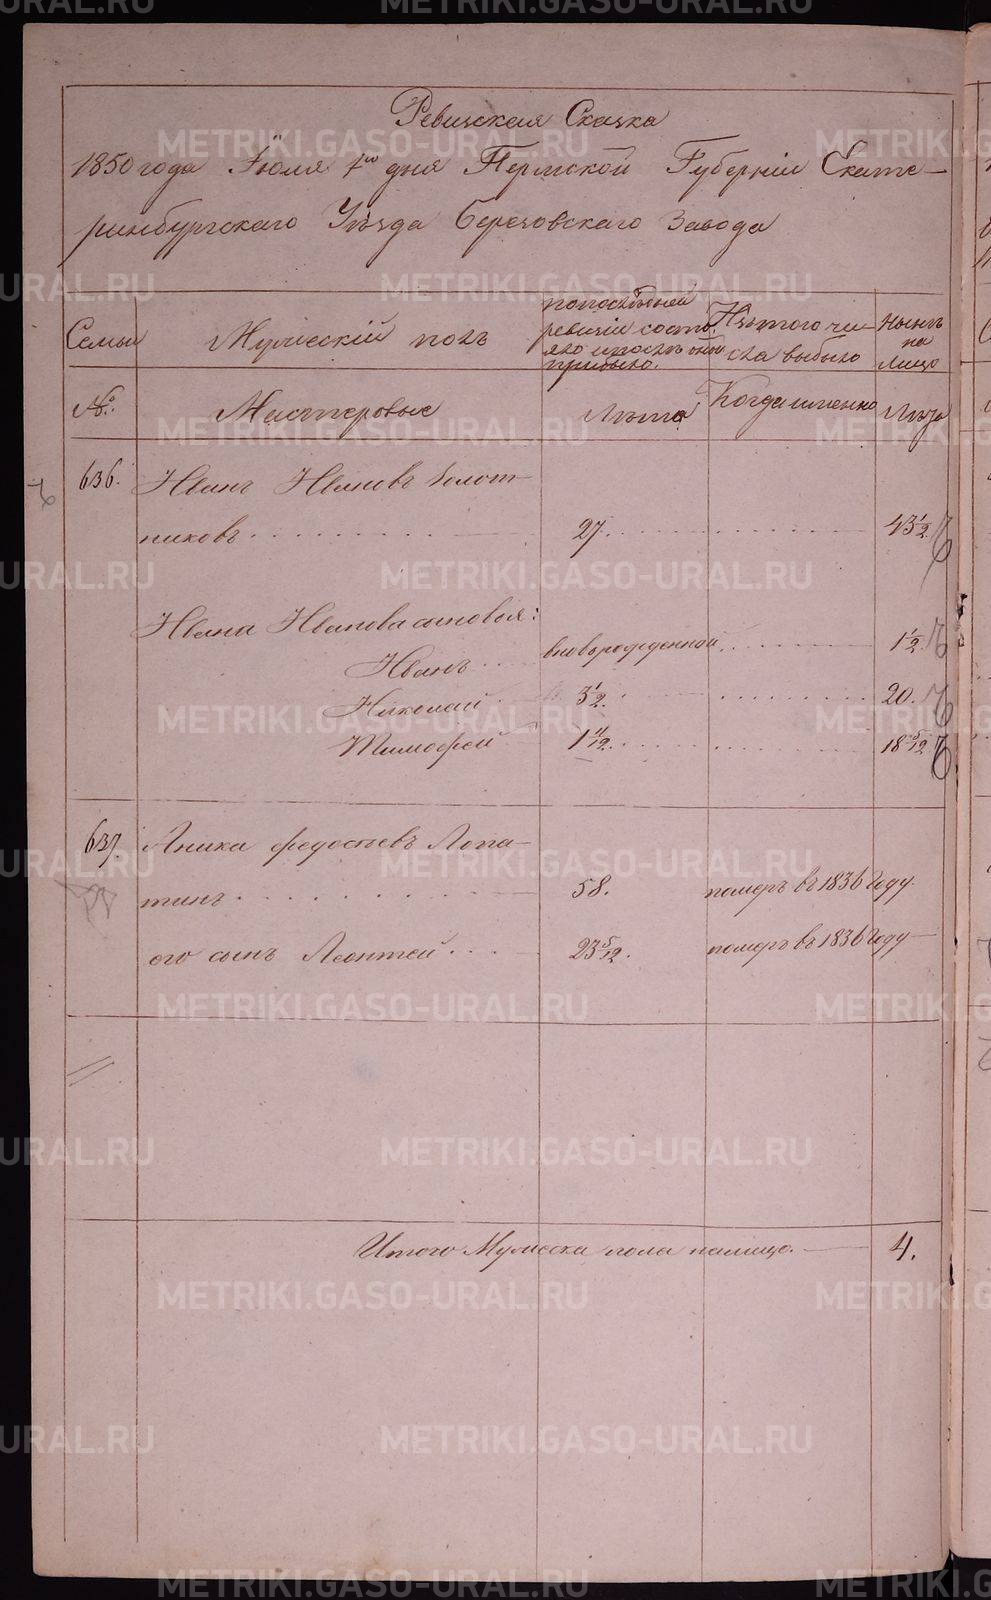 Ревизская Сказка
1850 года Июля 1го дня Пермской Губерніи Екате-
ринбургскаго Уѣзда Березовскаго Завода
Семьи
Мужескій полъ
по послѣдней
ревизіи состо-
яло и послѣ оной
прибыло.
Изъ того чи-
сла выбыло
Нынѣ
на
лицо
№.
Мастеровые
Лѣта
Когда именно
Лѣта
636. Иванъ Ивановъ Болот-
никовъ 27 43 1/2
Ивана Иванова сыновья:
Иванъ вновьрожденной 1 1/2
Николай 3 1/2. 20.
Тимофей 1 11/12. 18 5/12
637. Аника Федосѣевъ Лопа-
тинъ 58. померъ въ 1836 Году.
его сынъ Леонтей 23 5/12. померъ въ 1836 Году
Итого Мужеска пола налицо. 4.
METRIKI.GASO-URAL.RU